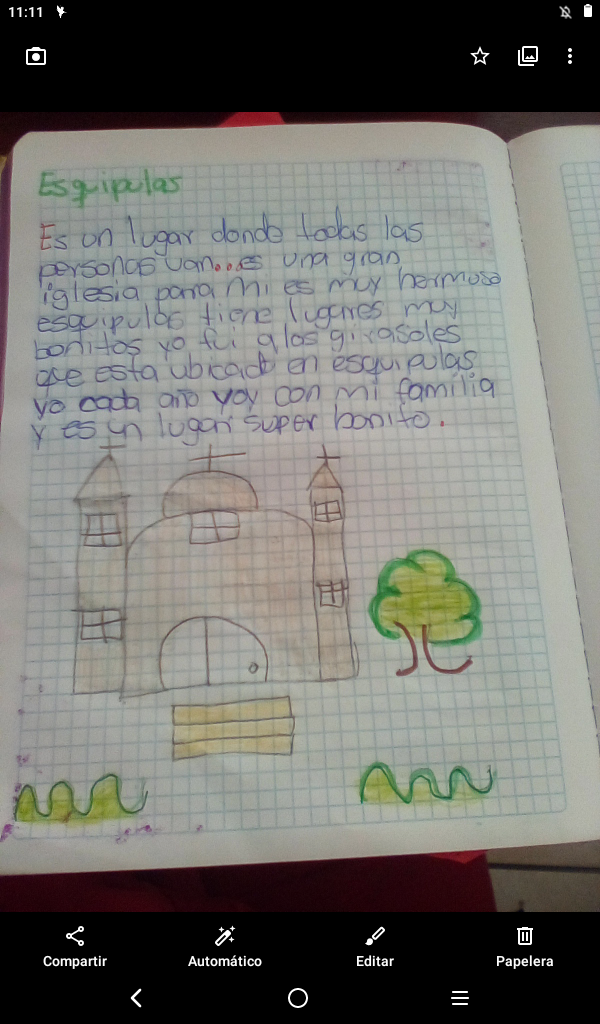 11:11
Esquipulas
Es un lugar donde todas las
personas van...es una gran
iglesia para mi es muy hermoso
esquipulas tiene lugares muy
bonitos yo fui a los girasoles
que esta ubicado en esquipulas
yo cada año voy con mi familia
y es un lugar super bonito.
Compartir
Automático
Editar
Papelera